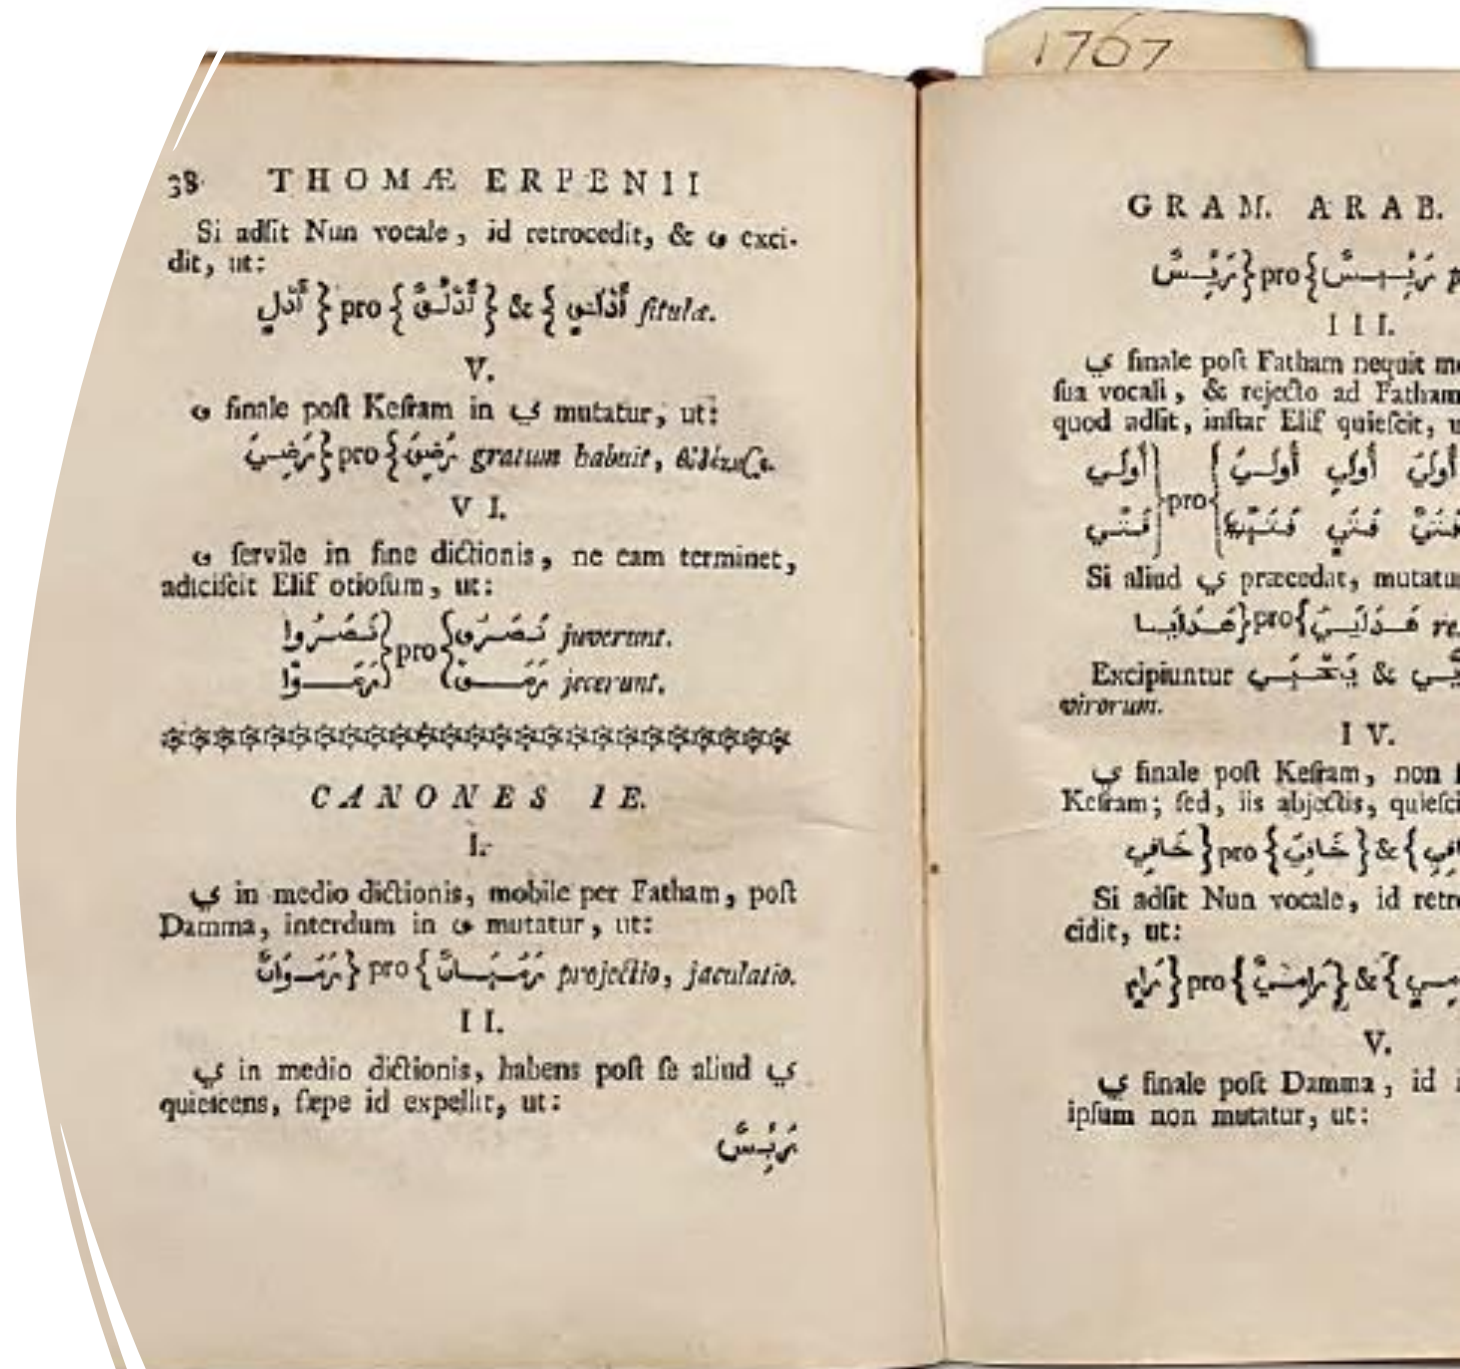 1767
38 THOMÆ ERPENII
Si adſit Nun vocale, id retrocedit, & و exci-
dit, ut:
أَدْلٍ } pro { أَدْلُوٌ } & { أَدْلُنْ ſitulæ.
V.
و finale poſt Keſram in ي mutatur, ut:
رَضِيَ } pro { رَضِوَ gratum habuit,
VI.
و ſervile in fine dictionis, ne eam terminet,
adiciſcit Elif otioſum, ut:
نَصَرُوا } pro { نَصَرُو juverunt.
رَمَوْا } { رَمَوْ jecerunt.
CANONES IE.
I.
ي in medio dictionis, mobile per Fatham, poſt
Damma, interdum in و mutatur, ut:
رَمُوَانٌ } pro { رَمُيَانٌ projectio, jaculatio.
II.
ي in medio dictionis, habens poſt ſe aliud ي
quieſcens, ſæpe id expellit, ut:
رَيِسٌ
GRAM. ARAB.
pro
III.
ي finale poſt Fatham nequit
ſua vocali, & rejecto ad Fatham
quod adſit, inſtar Elif quieſcit,
أُولَي } pro { أُولَيُ أُولَيِ أُولَيَ
فَتًي
Si aliud ي præcedat,
هَدَايَا } pro { هَدَايَيُ
Excipiuntur يَحْيَي &
virorum.
IV.
ي finale poſt Keſram, non
Keſram; ſed, iis abjectis,
خَافِي } pro { خَافِيُ } &
Si adſit Nun vocale, id
cidit, ut:
رَامٍ } pro { رَامِيٌ } &
V.
ي finale poſt Damma, id
ipſum non mutatur, ut: